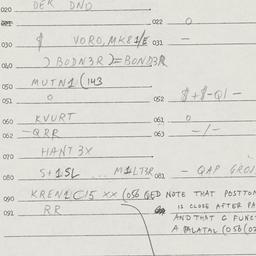 020 DER DNO
021 022 O
030 $ VORO, MK81/E 031 —
040 ) BODN3R )= BOND3R
050 MUTN1 (143
051 O 052 $+$-Q1-
060 KVURT 061 O
062 -QRR 063 -/-
070 HANT 3X
080 S+1SL ... M1LT3R 081 - QAP GROU
090 KREN1C15 XX (056 QED NOTE THAT POSTTON
091 RR IS CLOSE AFTER PA
AND THAT G FUNCT
A PALATAL (056 (02